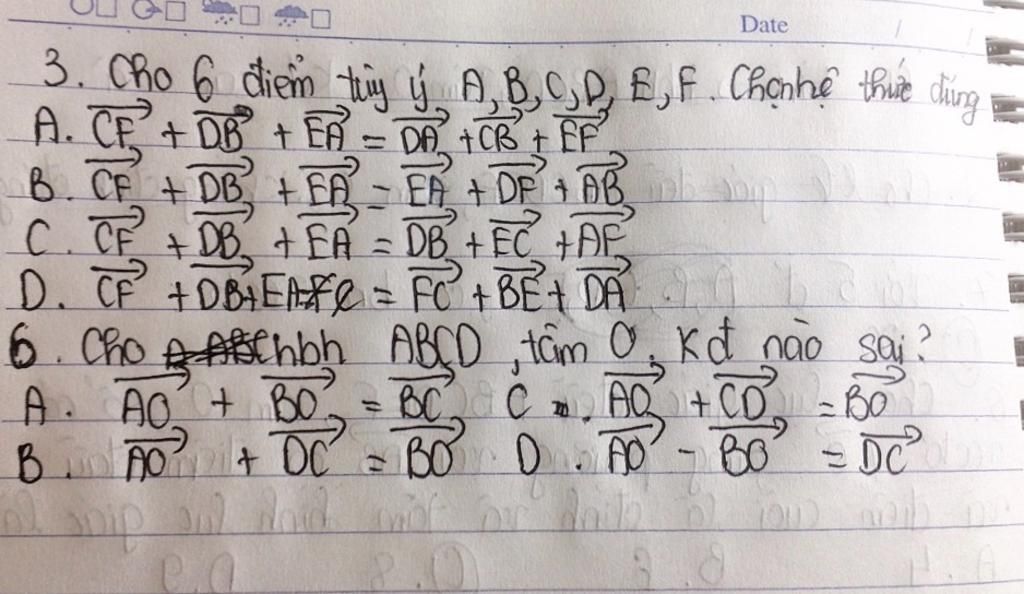 Date
3. Cho 6 điểm tùy ý A, B, C, D, E, F. Chọn hệ thức đúng
A. CF + DB + EA = DA + CB + EF
B. CF + DB + EA = EA + DF + AB
C. CF + DB + EA = DB + EC + AF
D. CF + DB + EA = FC + BE + DA
6. Cho hbh ABCD, tâm O. Kđ nào sai?
A. AO + BO = BC C. AO + CD = BO
B. AO + DC = BO D. AO - BO = DC